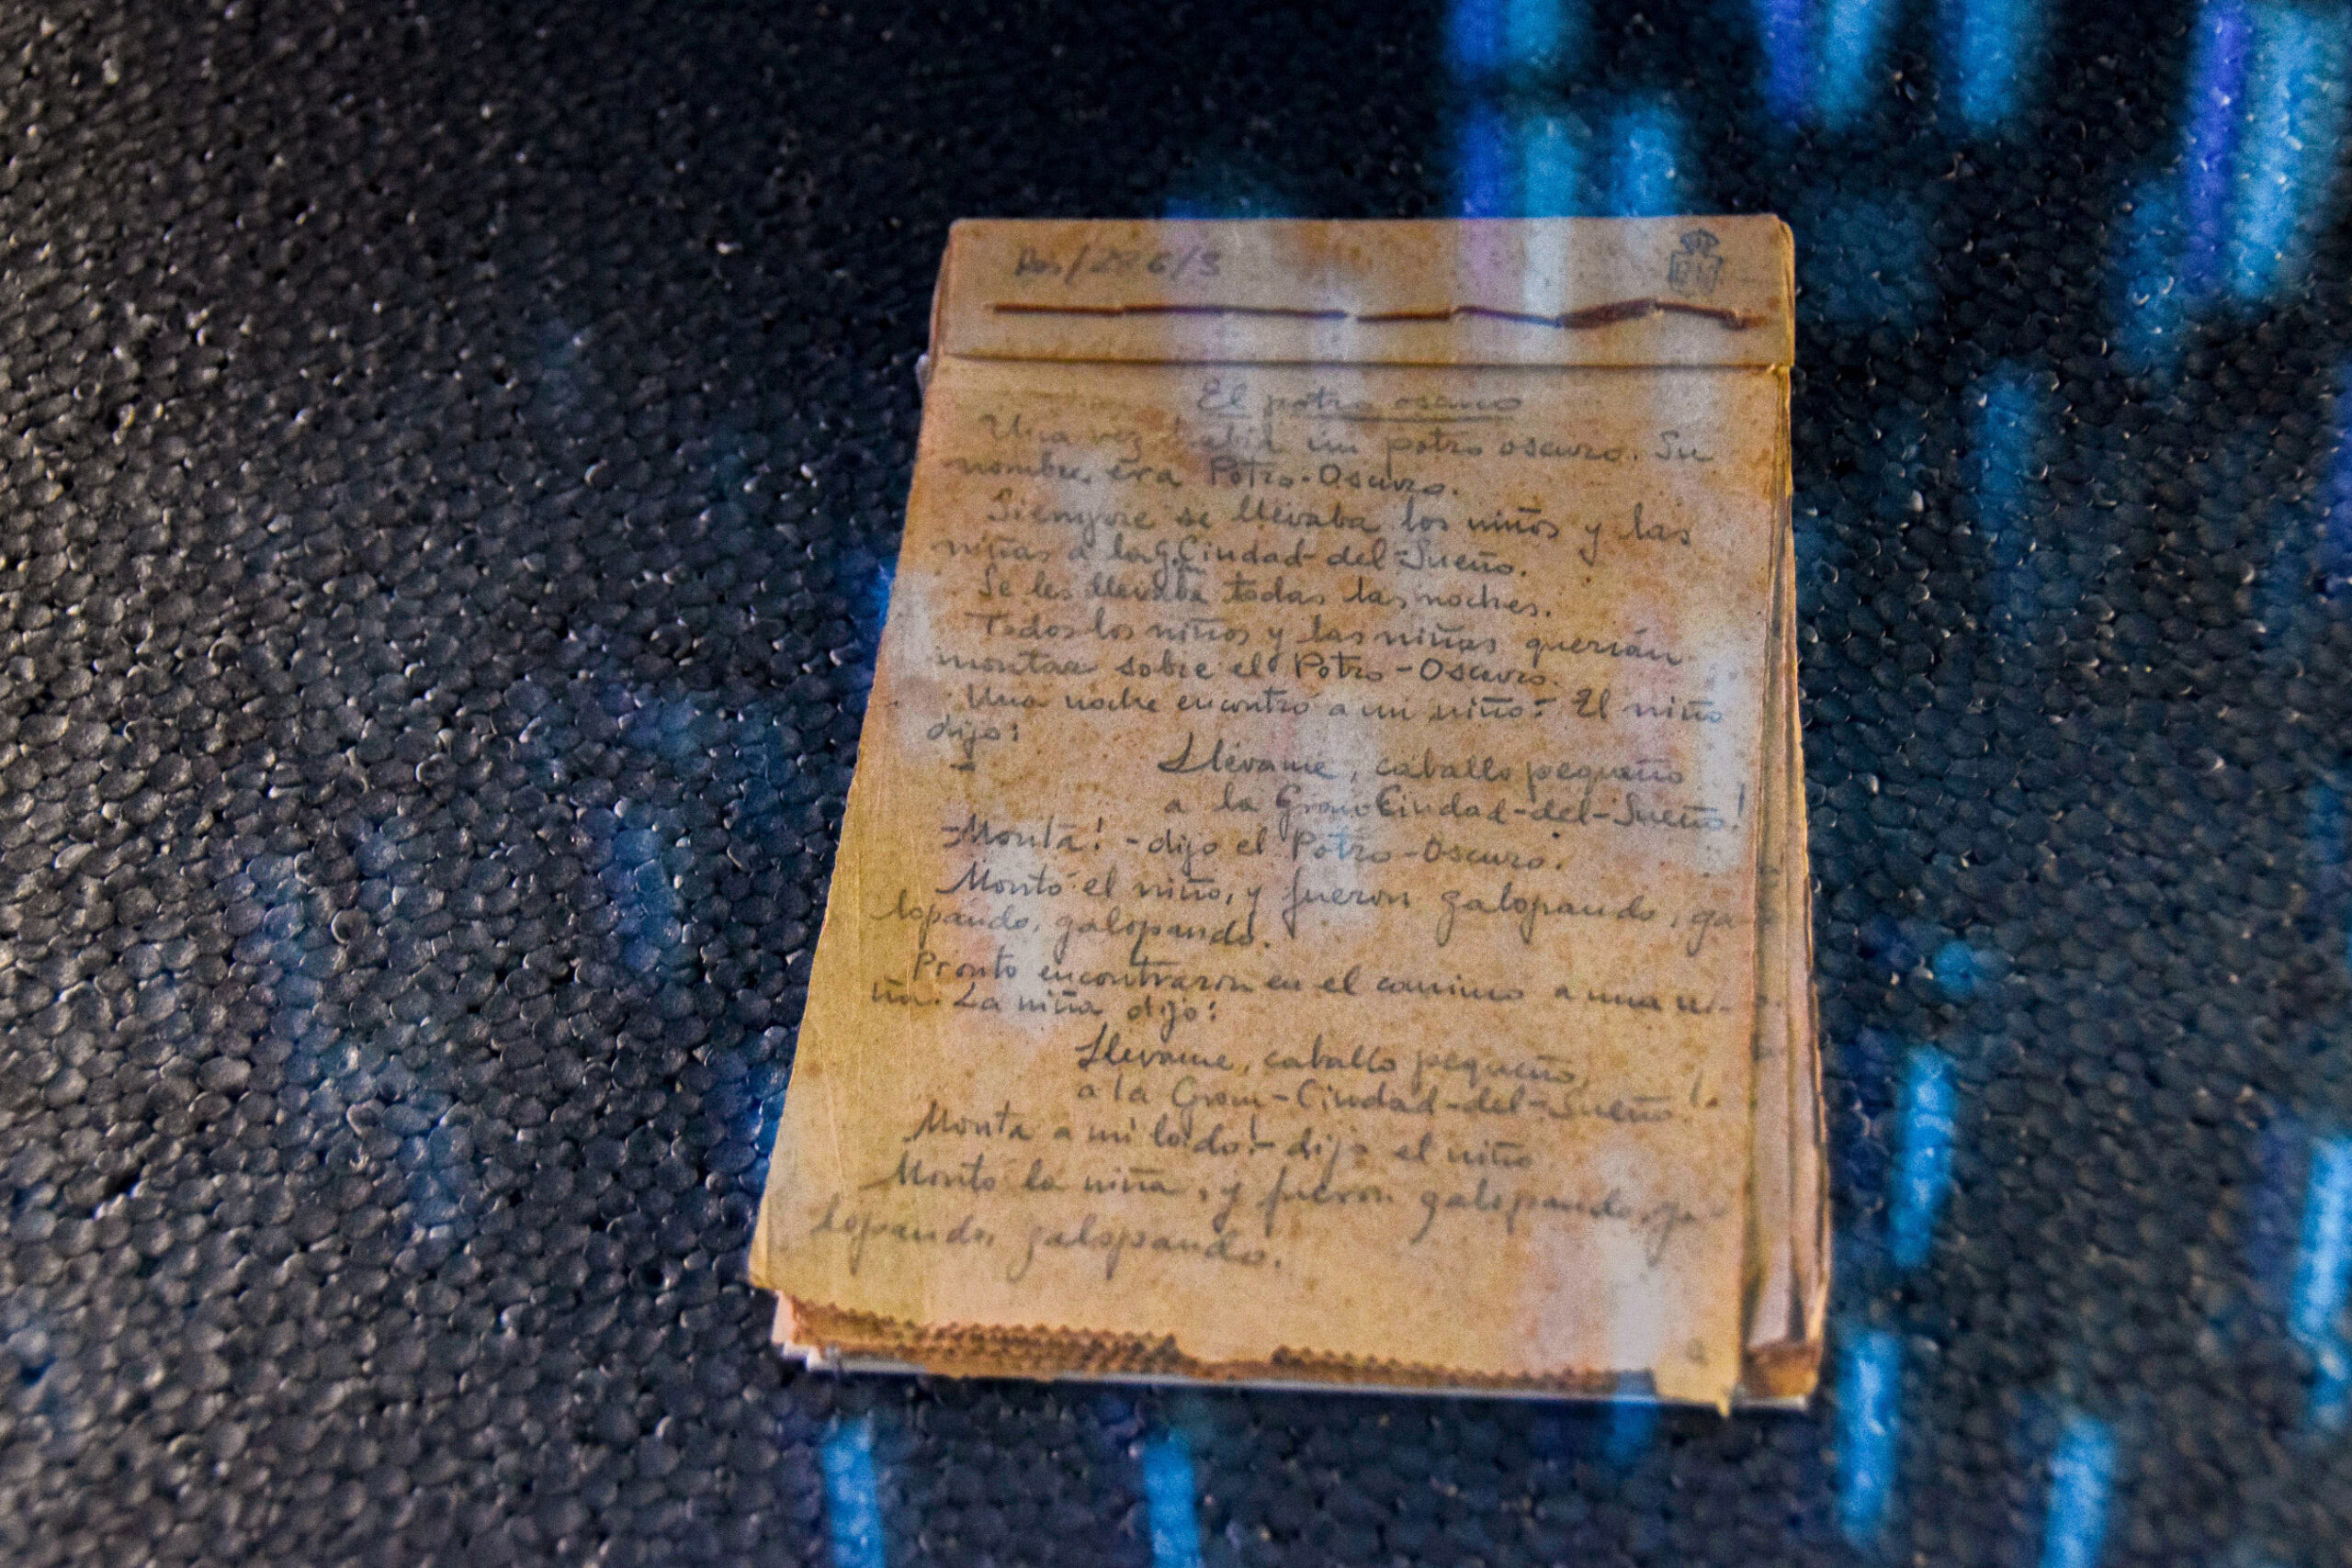 Res/296/3
El potro oscuro
Una vez había un potro oscuro. Su
nombre era Potro-Oscuro.
Siempre se llevaba los niños y las
niñas a la G. Ciudad-del-Sueño.
Se les llevaba todas las noches.
Todos los niños y las niñas querían
montar sobre el Potro-Oscuro.
Una noche encontró a un niño. El niño
dijo:
- Llévame, caballo pequeño
a la Gran Ciudad-del-Sueño!
-Monta! -dijo el Potro-Oscuro.
Montó el niño, y fueron galopando, ga
lopando, galopando.
Pronto encontraron en el camino a una ni-
ña. La niña dijo:
Llévame, caballo pequeño,
a la Gran-Ciudad-del-Sueño!
Monta a mi lado! - dijo el niño
Montó la niña, y fueron galopando, ga
lopando, galopando.